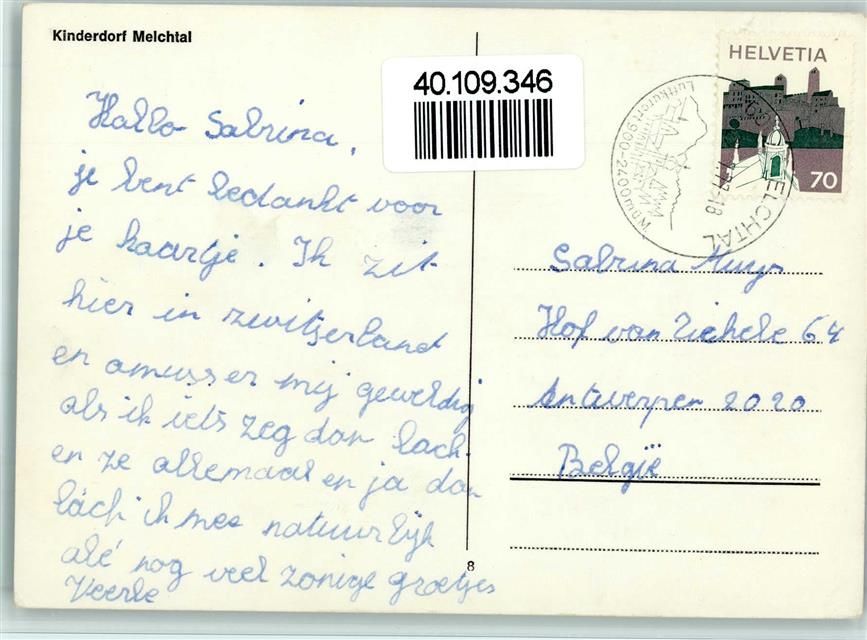 Kinderdorf Melchtal
40.109.346
HELVETIA
70
Luftkurort 900-2400 m ü M
MELCHTAL
Hallo Sabrina,
je bent bedankt voor
je kaartje. Ik zit
hier in zwitserland
en amuseer mij geweldig
als ik iets zeg dan lach-
en ze allemaal en ja dan
lach ik mee natuurlijk
alé nog veel zonige groetjes
Veerle
8
Sabrina
Hof van Tichele 64
Antwerpen 2020
België